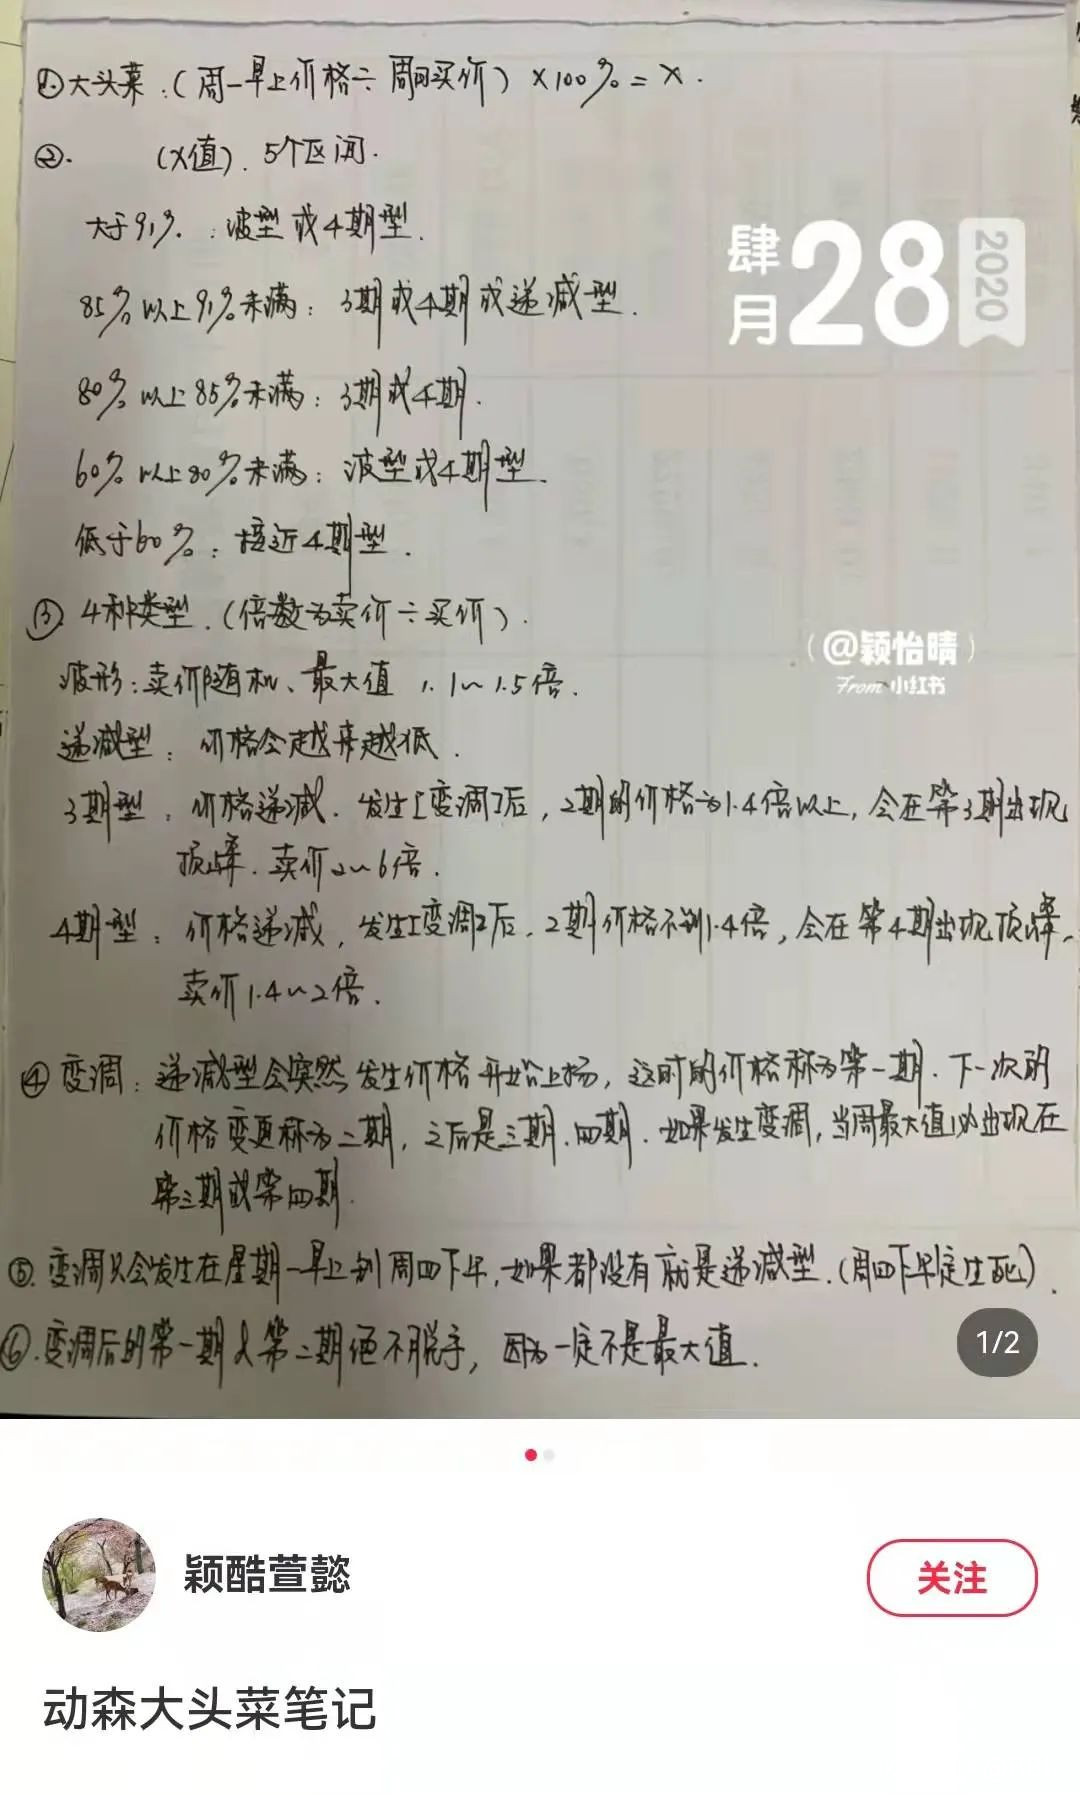 ①大头菜:(周一早上价格÷周日买价)×100%=X.
②. (X值). 5个区间.
大于91%. : 波型或4期型.
85%以上91%未满: 3期或4期或递减型.
80%以上85%未满: 3期或4期.
60%以上80%未满: 波型或4期型.
低于60%: 接近4期型.
③ 4种类型.(倍数为卖价÷买价).
波形: 卖价随机、最大值 1.1~1.5倍.
递减型: 价格会越来越低.
3期型: 价格递减. 发生[变调]后, 2期的价格为1.4倍以上, 会在第3期出现
顶峰. 卖价2~6倍.
4期型: 价格递减, 发生[变调]后, 2期价格不到1.4倍, 会在第4期出现顶峰,
卖价1.4~2倍.
④变调: 递减型会突然发生价格开始上扬, 这时的价格称为第一期. 下一次的
价格变更称为二期, 之后是三期.四期. 如果发生变调, 当周最大值必出现在
第三期或第四期.
⑤. 变调只会发生在星期一早上到周四下午, 如果都没有就是递减型.(周四下午定生死).
⑥. 变调后的第一期及第二期便不脱手, 因为一定不是最大值.
肆月28 2020
(@颖怡晴)
From 小红书
1/2
颖酷萱懿
关注
动森大头菜笔记